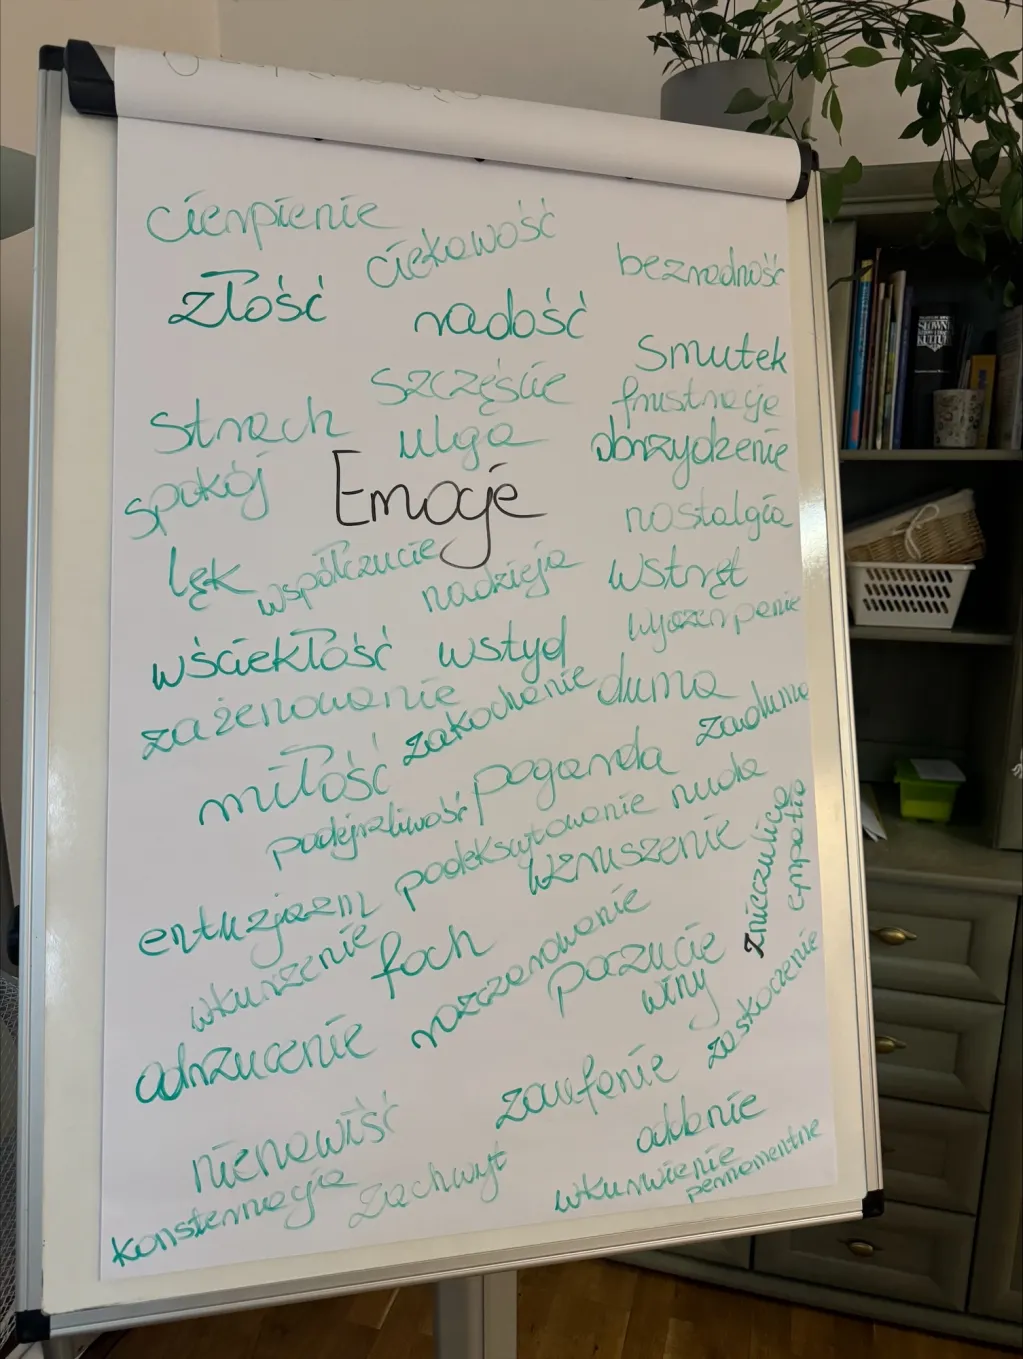 cierpienie
ciekawość
bezradność
złość
radość
smutek
szczęście
frustracje
strach
ulga
obrzydzenie
spokój
Emocje
nostalgia
lęk
współczucie
nadzieja
wstręt
wściekłość
wstyd
wyczerpanie
zażenowanie
zakochanie
duma
zaduma
miłość
pogarda
podejrzliwość
podekscytowanie
nuda
wzruszenie
znieczulica
empatia
entuzjazm
wkurzenie
foch
rozczarowanie
poczucie
winy
zaskoczenie
odrzucenie
zaufanie
oddanie
nienawiść
konsternacja
zachwyt
wkurwienie
permamentne
SŁOWNIK